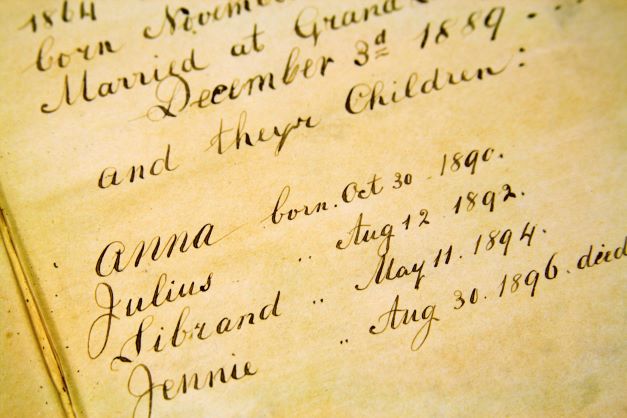 1864
born Novem
Married at Grand
December 3d 1889
and theyr Children:
Anna born. Oct 30 1890.
Julius " Aug 12 1892.
Sibrand " May 11. 1894.
Jennie " Aug 30. 1896. died